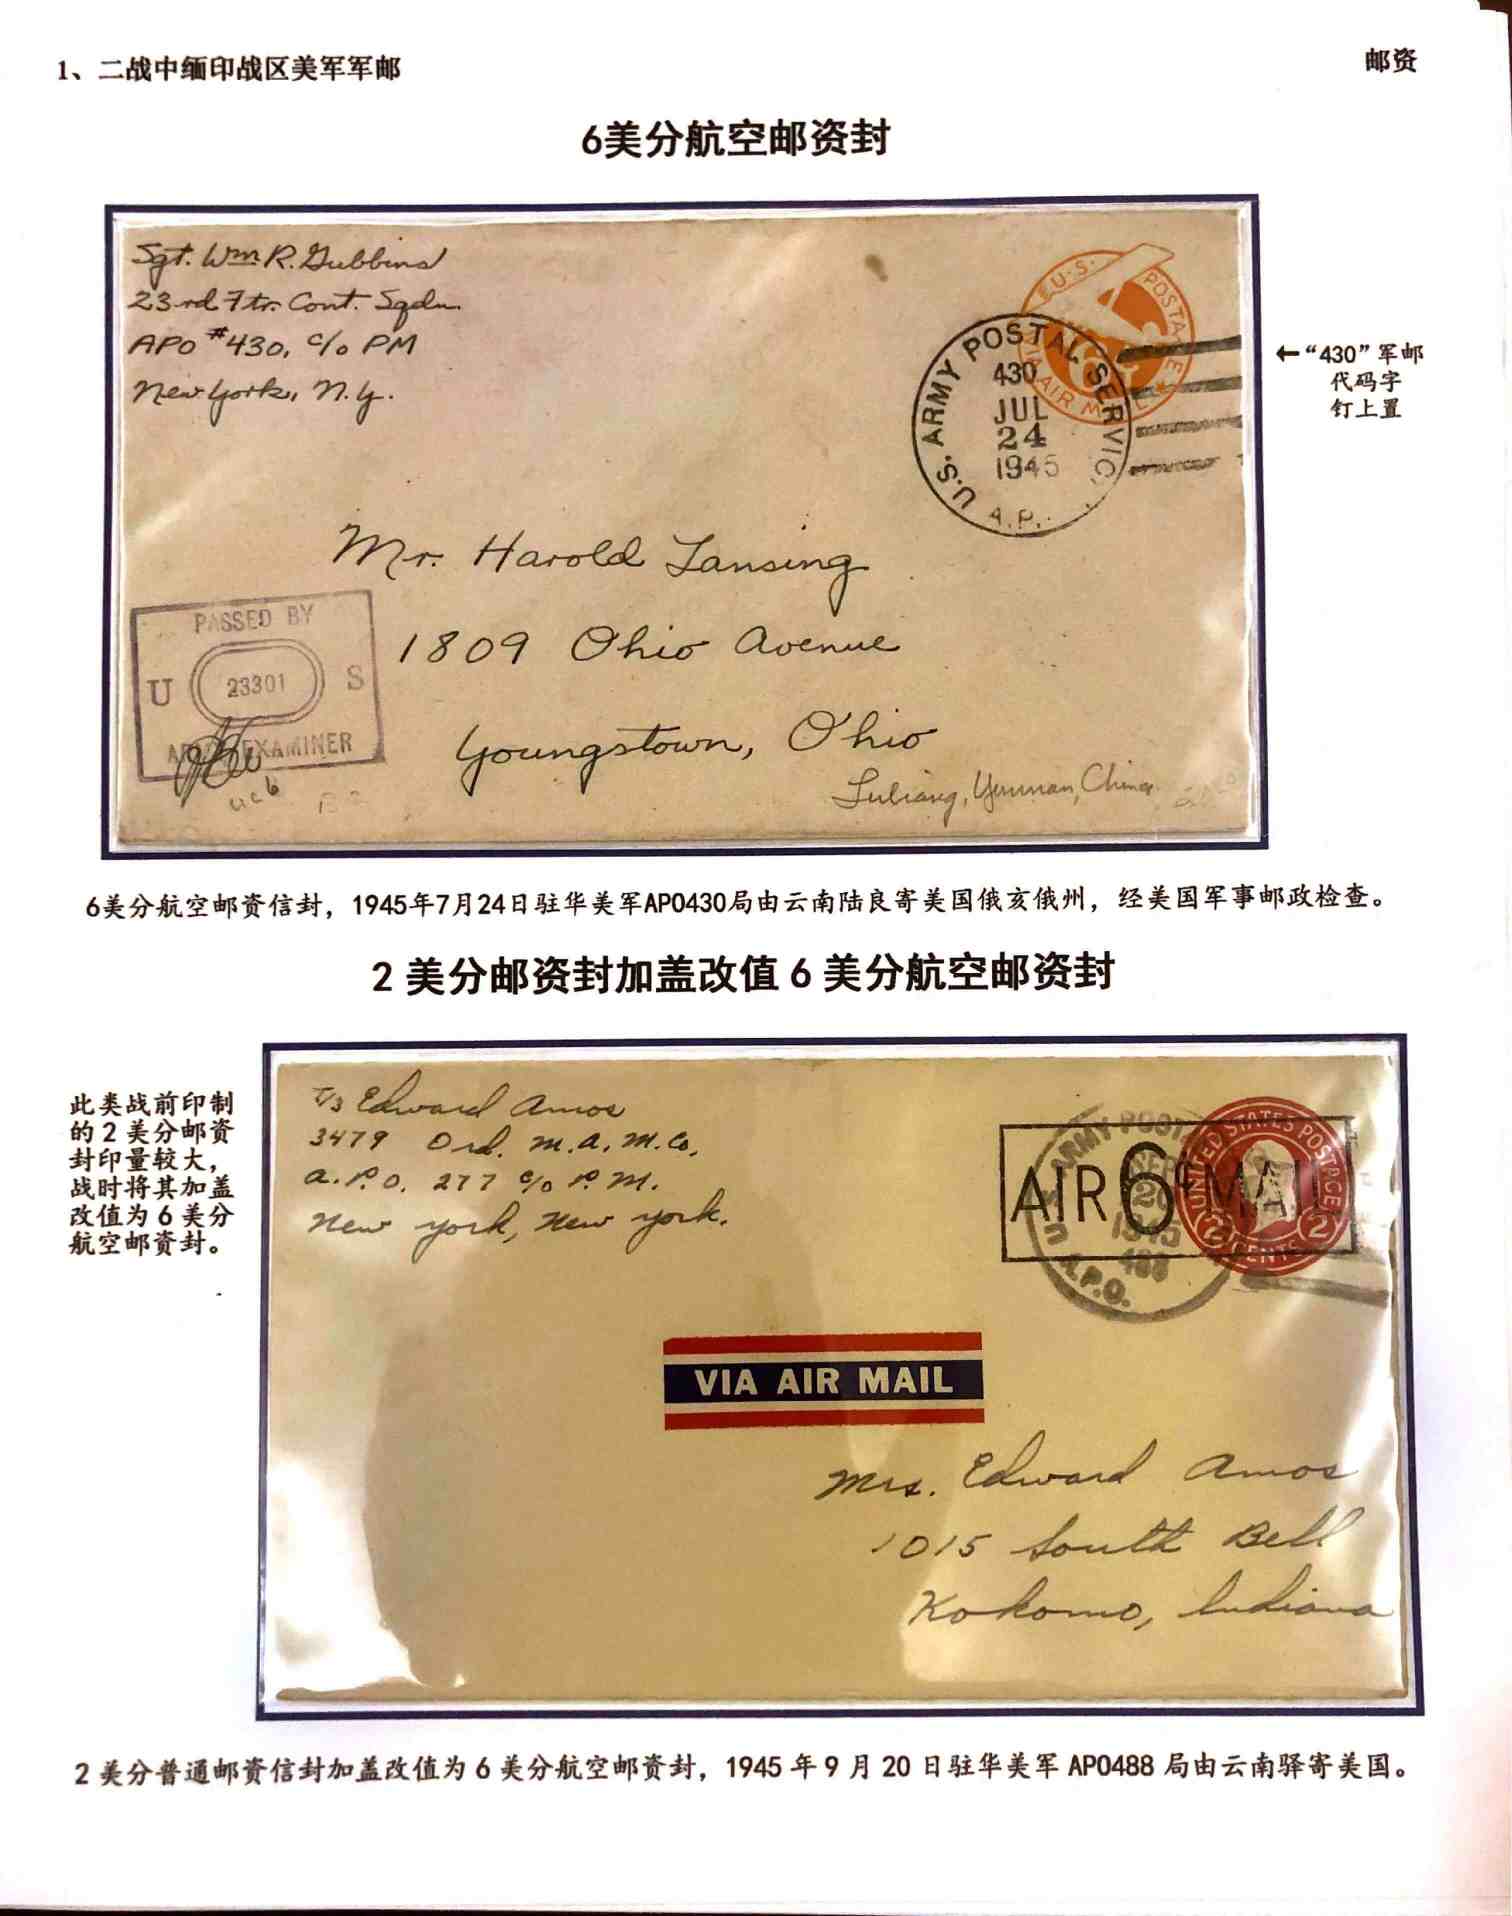 1、二战中缅印战区美军军邮
邮资
6美分航空邮资封
Sgt. Wm R. Gubbins
23rd Ftr. Cont. Sqdn.
APO #430, c/o PM
New York, N.Y.
U.S. POSTAGE
AIR MAIL
U.S. ARMY POSTAL SERVIC
430
JUL
24
1945
A.P.
←“430”军邮
代码字
钉上置
Mr. Harold Lansing
1809 Ohio Avenue
Youngstown, Ohio
PASSED BY
U 23301 S
ARMY EXAMINER
Luliang, Yunnan, China
6美分航空邮资信封，1945年7月24日驻华美军APO430局由云南陆良寄美国俄亥俄州，经美国军事邮政检查。
2美分邮资封加盖改值6美分航空邮资封
此类战前印制
的2美分邮资
封印量较大，
战时将其加盖
改值为6美分
航空邮资封。
T/3 Edward Amos
3479 Ord. M.A.M.Co.
A.P.O. 277 c/o P.M.
New York, New York.
UNITED STATES POSTAGE
2 CENTS 2
AIR 6¢ MAIL
ARMY POSTAL
SEP
20
1945
488
A.P.O.
VIA AIR MAIL
Mrs. Edward Amos
1015 South Bell
Kokomo, Indiana
2美分普通邮资信封加盖改值为6美分航空邮资封，1945年9月20日驻华美军APO488局由云南驿寄美国。